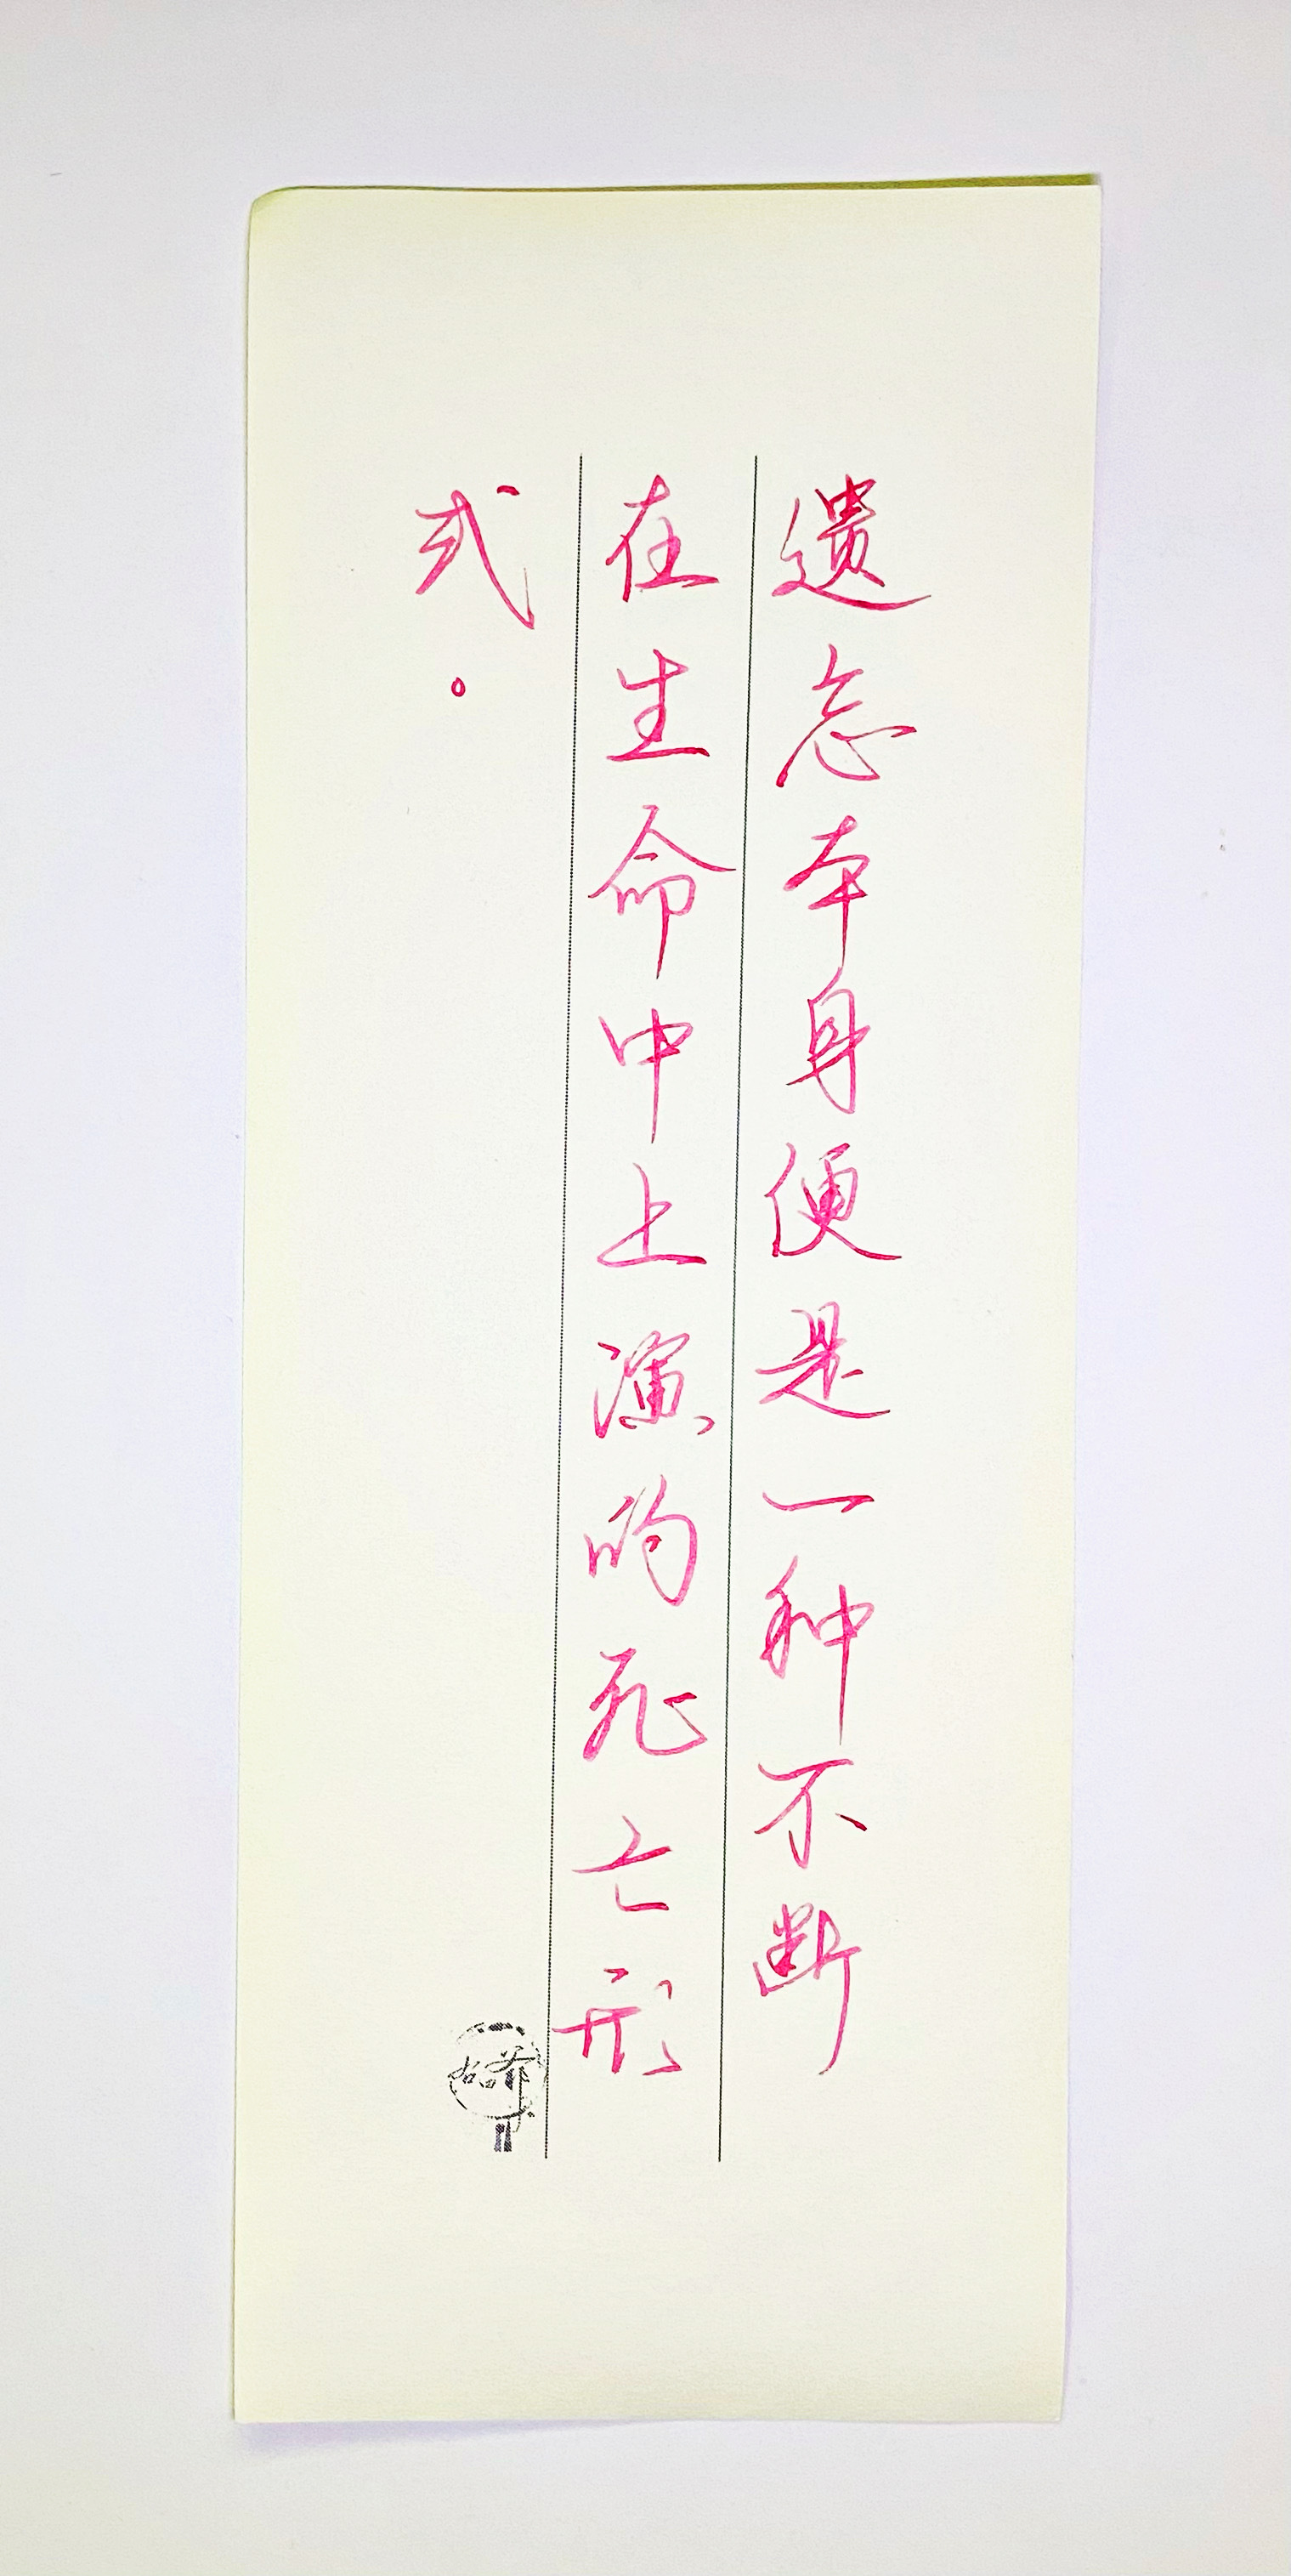 遗忘本身便是一种不断
在生命中上演的死亡形
式。